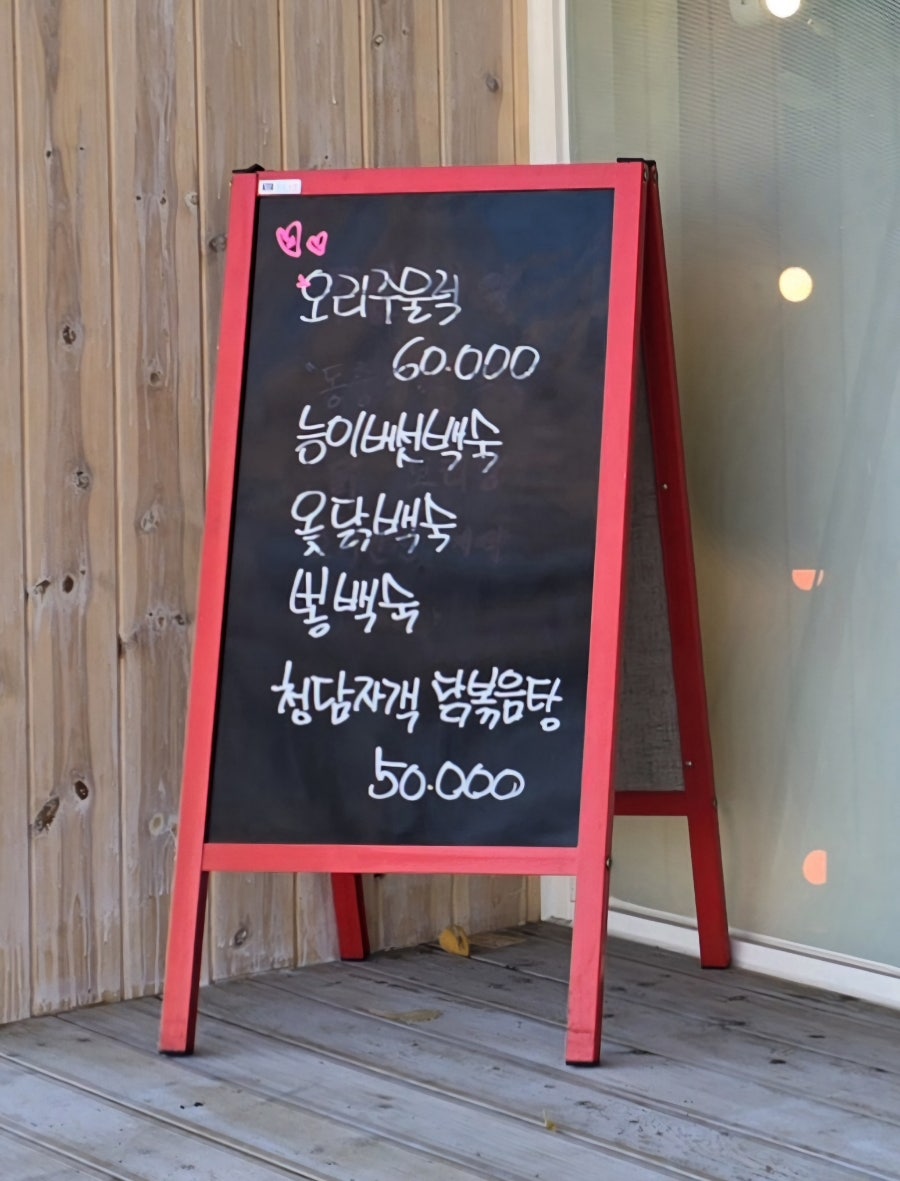 오리주물럭
60.000
능이버섯백숙
옻닭백숙
뽕백숙
청담자객 닭볶음탕
50.000